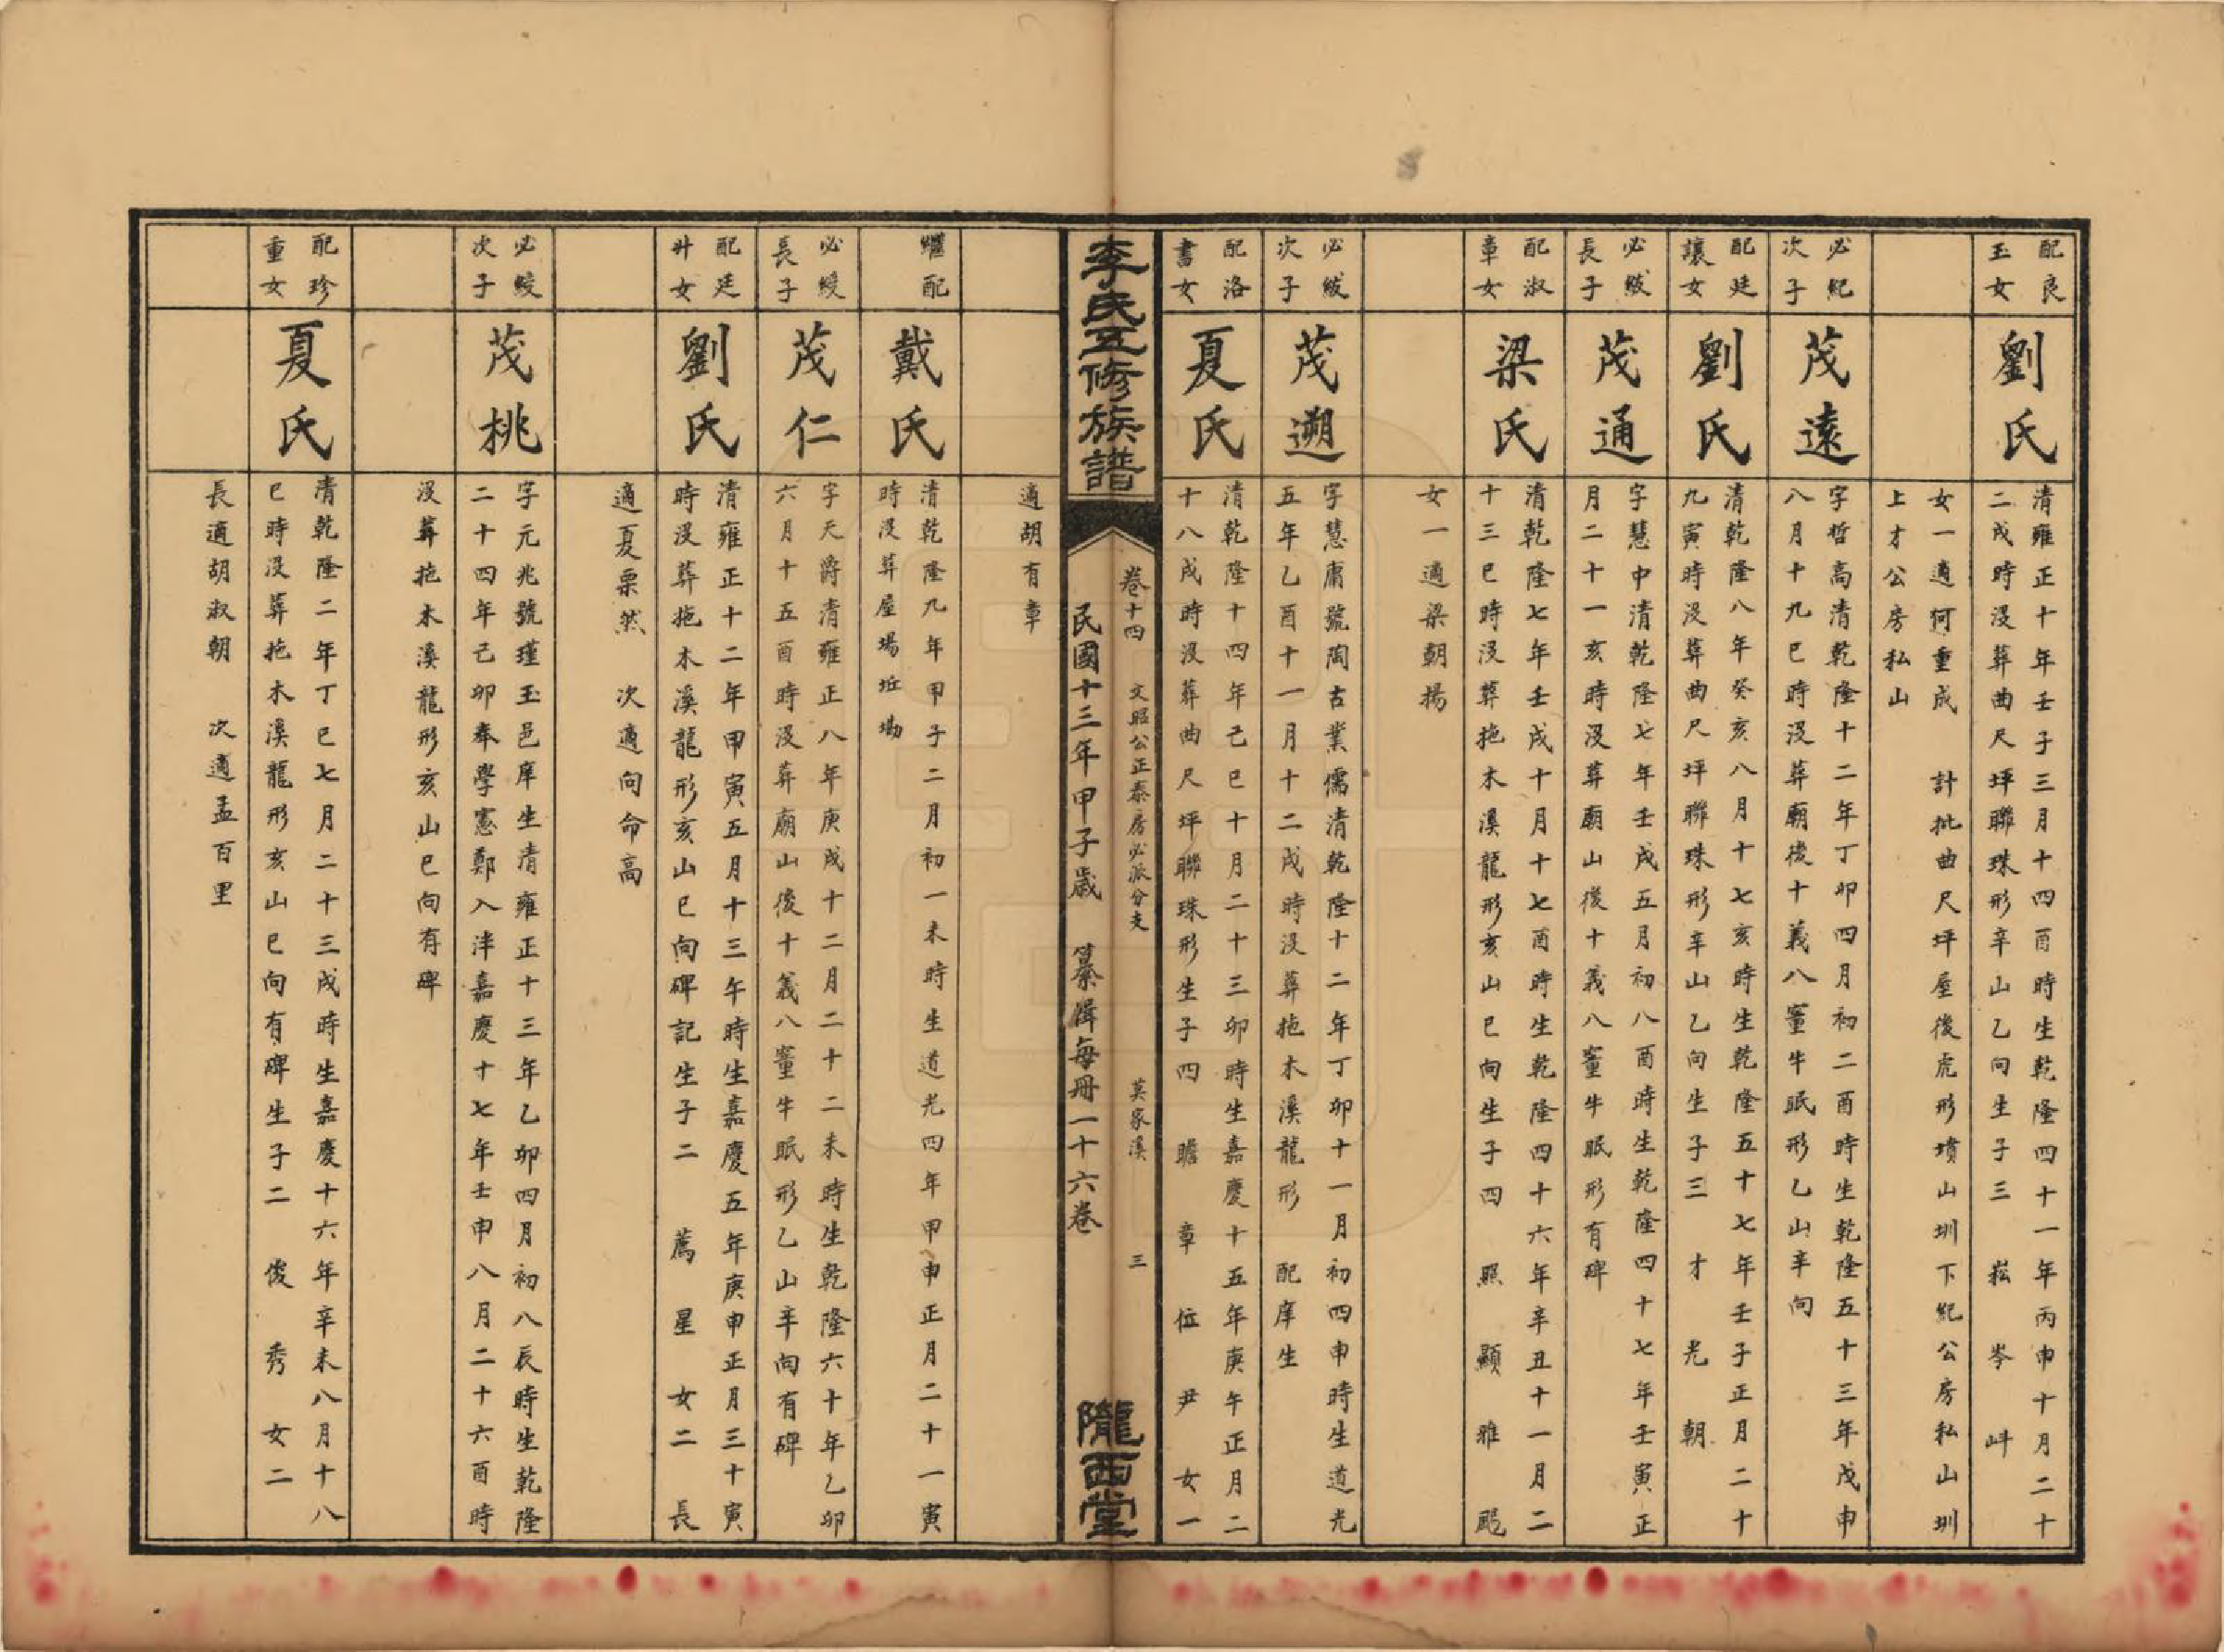 配良
玉女
劉氏
清雍正十年壬子三月十四酉時生乾隆四十一年丙申十月二十
二戌時沒葬曲尺坪聯珠形辛山乙向生子三　崧　岑　屽
女一適何重成　計批曲尺坪屋後虎形墳山圳下紀公房私山圳
上才公房私山
必紀
次子
茂遠
字哲高清乾隆十二年丁卯四月初二酉時生乾隆五十三年戊申
八月十九巳時沒葬廟後十義八薹牛眠形乙山辛向
配廷
讓女
劉氏
清乾隆八年癸亥八月十七亥時生乾隆五十七年壬子正月二十
九寅時沒葬曲尺坪聯珠形辛山乙向生子三　才　光　朝
必紱
長子
茂通
字慧中清乾隆七年壬戌五月初八酉時生乾隆四十七年壬寅正
月二十一亥時沒葬廟山後十義八薹牛眠形有碑
配淑
章女
梁氏
清乾隆七年壬戌十月十七酉時生乾隆四十六年辛丑十一月二
十三巳時沒葬拖木溪龍形亥山巳向生子四　照　顯　雅　颺
女一適梁朝揚
必紱
次子
茂遡
字慧庸號陶古業儒清乾隆十二年丁卯十一月初四申時生道光
五年乙酉十一月十二戌時沒葬拖木溪龍形　配庠生
配洛
書女
夏氏
清乾隆十四年己巳十月二十三卯時生嘉慶十五年庚午正月二
十八戌時沒葬曲尺坪聯珠形生子四　瞻　章　位　尹　女一
李氏五修族譜
卷十四　文昭公正泰房必派分支　莫家溪　三
民國十三年甲子歲　纂脩每冊一十六卷
隴西堂
適胡有章
繼配
戴氏
清乾隆九年甲子二月初一未時生道光四年甲申正月二十一寅
時沒葬屋場坵塝
必綬
長子
茂仁
字天爵清雍正八年庚戌十二月二十二未時生乾隆六十年乙卯
六月十五酉時沒葬廟山後十義八薹牛眠形乙山辛向有碑
配廷
升女
劉氏
清雍正十二年甲寅五月十三午時生嘉慶五年庚申正月三十寅
時沒葬拖木溪龍形亥山巳向碑記生子二　薦　星　女二　長
適夏栗然　次適向命高
必綬
次子
茂桃
字元兆號瑾玉邑庠生清雍正十三年乙卯四月初八辰時生乾隆
二十四年己卯奉學憲鄭入泮嘉慶十七年壬申八月二十六酉時
沒葬拖木溪龍形亥山巳向有碑
配珍
重女
夏氏
清乾隆二年丁巳七月二十三戌時生嘉慶十六年辛未八月十八
巳時沒葬拖木溪龍形亥山巳向有碑生子二　俊　秀　女二
長適胡淑朝　次適孟百里